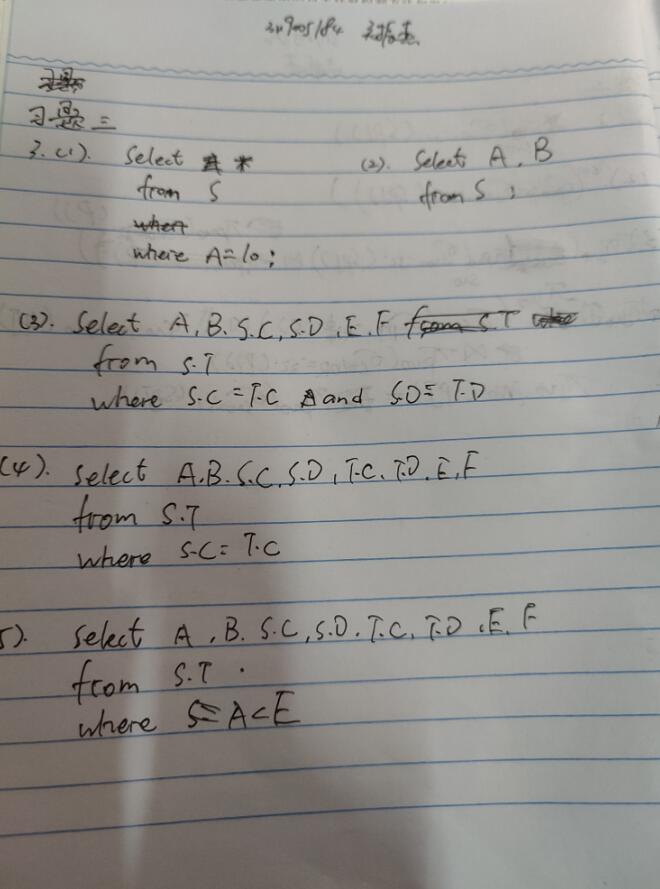 习题三
3.(1). Select *
from S
where A=10;
(2). Select A, B
from S;
(3). Select A, B. S.C, S.D, E, F
from S.T
where S.C=T.C and S.D=T.D
(4). Select A.B. S.C, S.D, T.C, T.D, E, F
from S.T
where S.C=T.C
5). Select A, B. S.C, S.D. T.C, T.D, E. F
from S.T.
where A<E